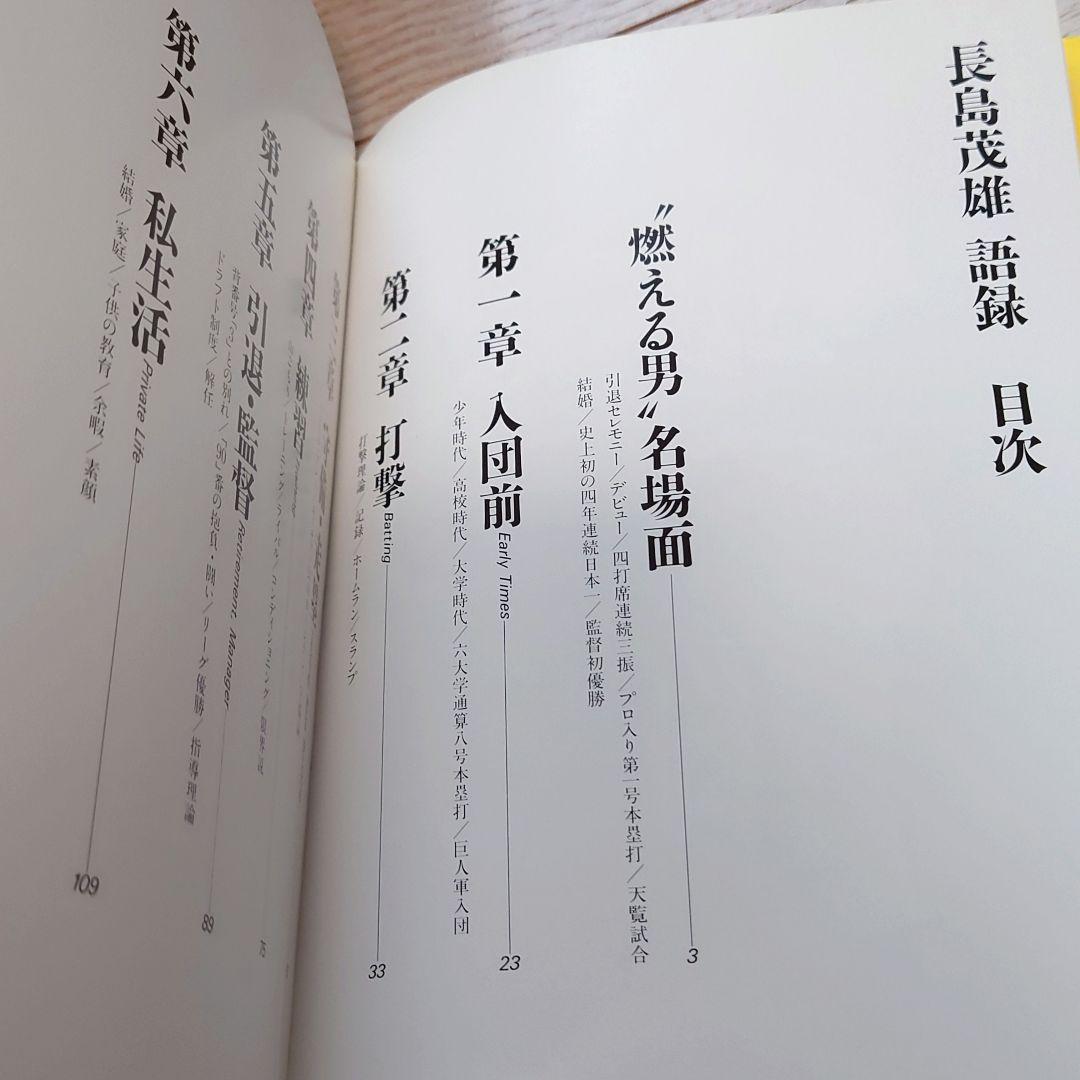 長島茂雄 語録 目次
〝燃える男〟名場面 3
引退セレモニー/デビュー/四打席連続三振/プロ入り第一号本塁打/天覧試合
結婚/史上初の四年連続日本一/監督初優勝
第一章 入団前 Early Times 23
少年時代/高校時代/大学時代/六大学通算八号本塁打/巨人軍入団
第二章 打撃 Batting 33
打撃理論/記録/ホームラン/スランプ
第四章 練習 75
トレーニング/ライバル/コンディショニング/限界説
第五章 引退・監督 Retirement, Manager 89
背番号「3」との別れ/「90」番の抱負・闘い/リーグ優勝/指導理論
ドラフト制度/解任
第六章 私生活 Private Life 109
結婚/家庭/子供の教育/余暇/素顔